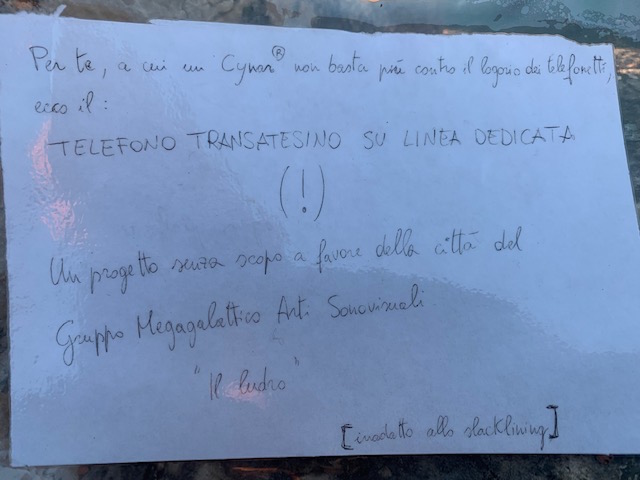 Per te, a cui un Cynar® non basta più contro il logorio dei telefonetti,
ecco il:
TELEFONO TRANSATESINO SU LINEA DEDICATA
(!)
Un progetto senza scopo a favore della città del
Gruppo Megagalattico Arti Sonovisuali
"Il ludro"
[inadatto allo slacklining]